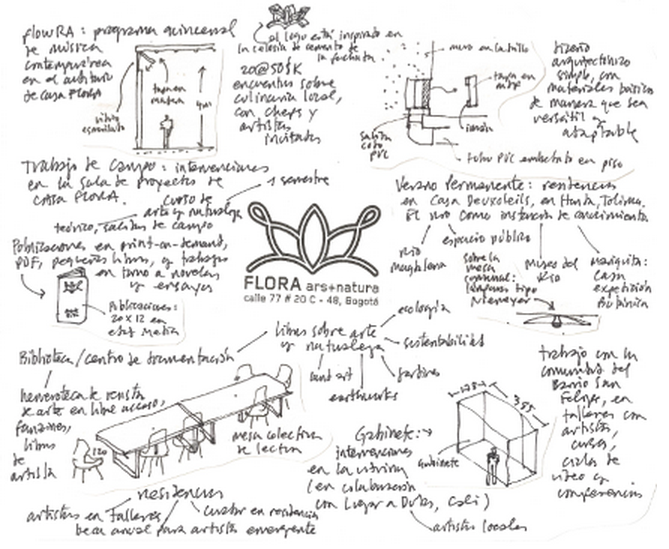 flowRA: programa quincenal
de música
contemporánea
en el auditorio
de casa FLORA
vidrio
esmerilado
tapa en
madera
4m
el logo está inspirado en
la celosía de cemento de
la fachada
20@50$K
encuentros sobre
culinaria local,
con chefs y
artistas
invitados
muro en ladrillo
tapa en
mdf
imán
Salida
codo
PVC
tubo PVC empotrado en piso
Diseño
arquitectónico
simple, con
materiales básicos
de manera que sea
versátil y
adaptable
Trabajo de campo: intervenciones
en la sala de proyectos de
casa FLORA.
curso de
arte y naturaleza
1 semestre
teórico, salidas de campo
Publicaciones en print-on-demand,
PDF, pequeños libros, y trabajos
en torno a novelas
y ensayos
Publicaciones:
20 x 12 en
FLORA ars+natura
calle 77 # 20 C - 48, Bogotá
Verano Permanente: residencias
en Casa Deuxsoleils, en Honda, Tolima.
El río como instancia de conocimiento
río
magdalena
espacio público
sobre la
mesa
comunal:
lámparas tipo
Niemeyer
museo del
río
mariquita:
casa
expedición
botánica
Biblioteca/centro de documentación
libros sobre arte
y naturaleza
ecología
sustentabilidad
jardines
land art
earthworks
hemeroteca de revistas
de arte en libre acceso,
fanzines,
libros
de
artista
mesa colectiva
de lectura
Gabinete:
intervenciones
en la vitrina
(en colaboración
con Lugar a Dudas, Cali)
artistas locales
Gabinete
1.78
3.55
trabajo con la
comunidad del
Barrio San
Felipe, en
talleres con
artistas,
cursos,
ciclos de
video y
conferencias
residencias
artistas en Talleres
curador en residencia
beca anual para artista emergente